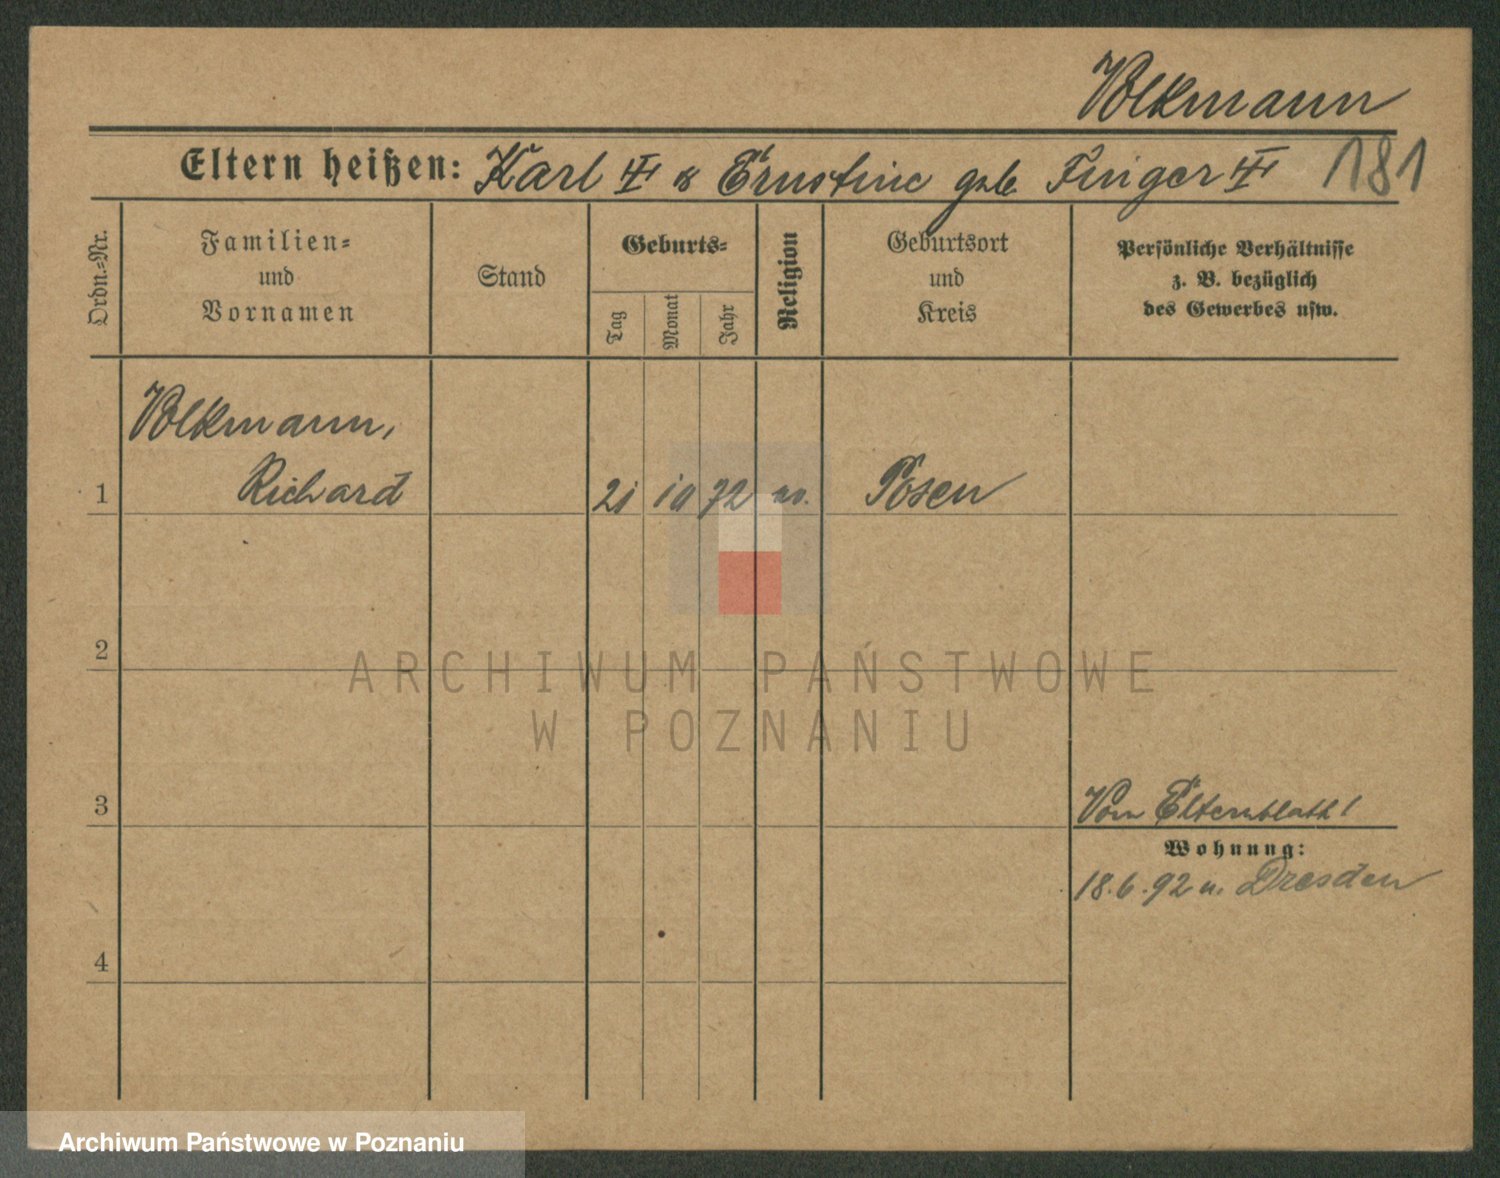 Volkmann
Eltern heißen: Karl & Ernstine geb. Finger 181
Ordn.=Nr.
Familien=
und
Vornamen
Stand
Geburts=
Tag
Monat
Jahr
Religion
Geburtsort
und
Kreis
Persönliche Verhältnisse
z. B. bezüglich
des Gewerbes usw.
Volkmann,
1 Richard 21 10 72 Posen
2
3
Vom Elternblatt!
Wohnung:
18.6.92 n. Dresden
4
ARCHIWUM PAŃSTWOWE
W POZNANIU
Archiwum Państwowe w Poznaniu